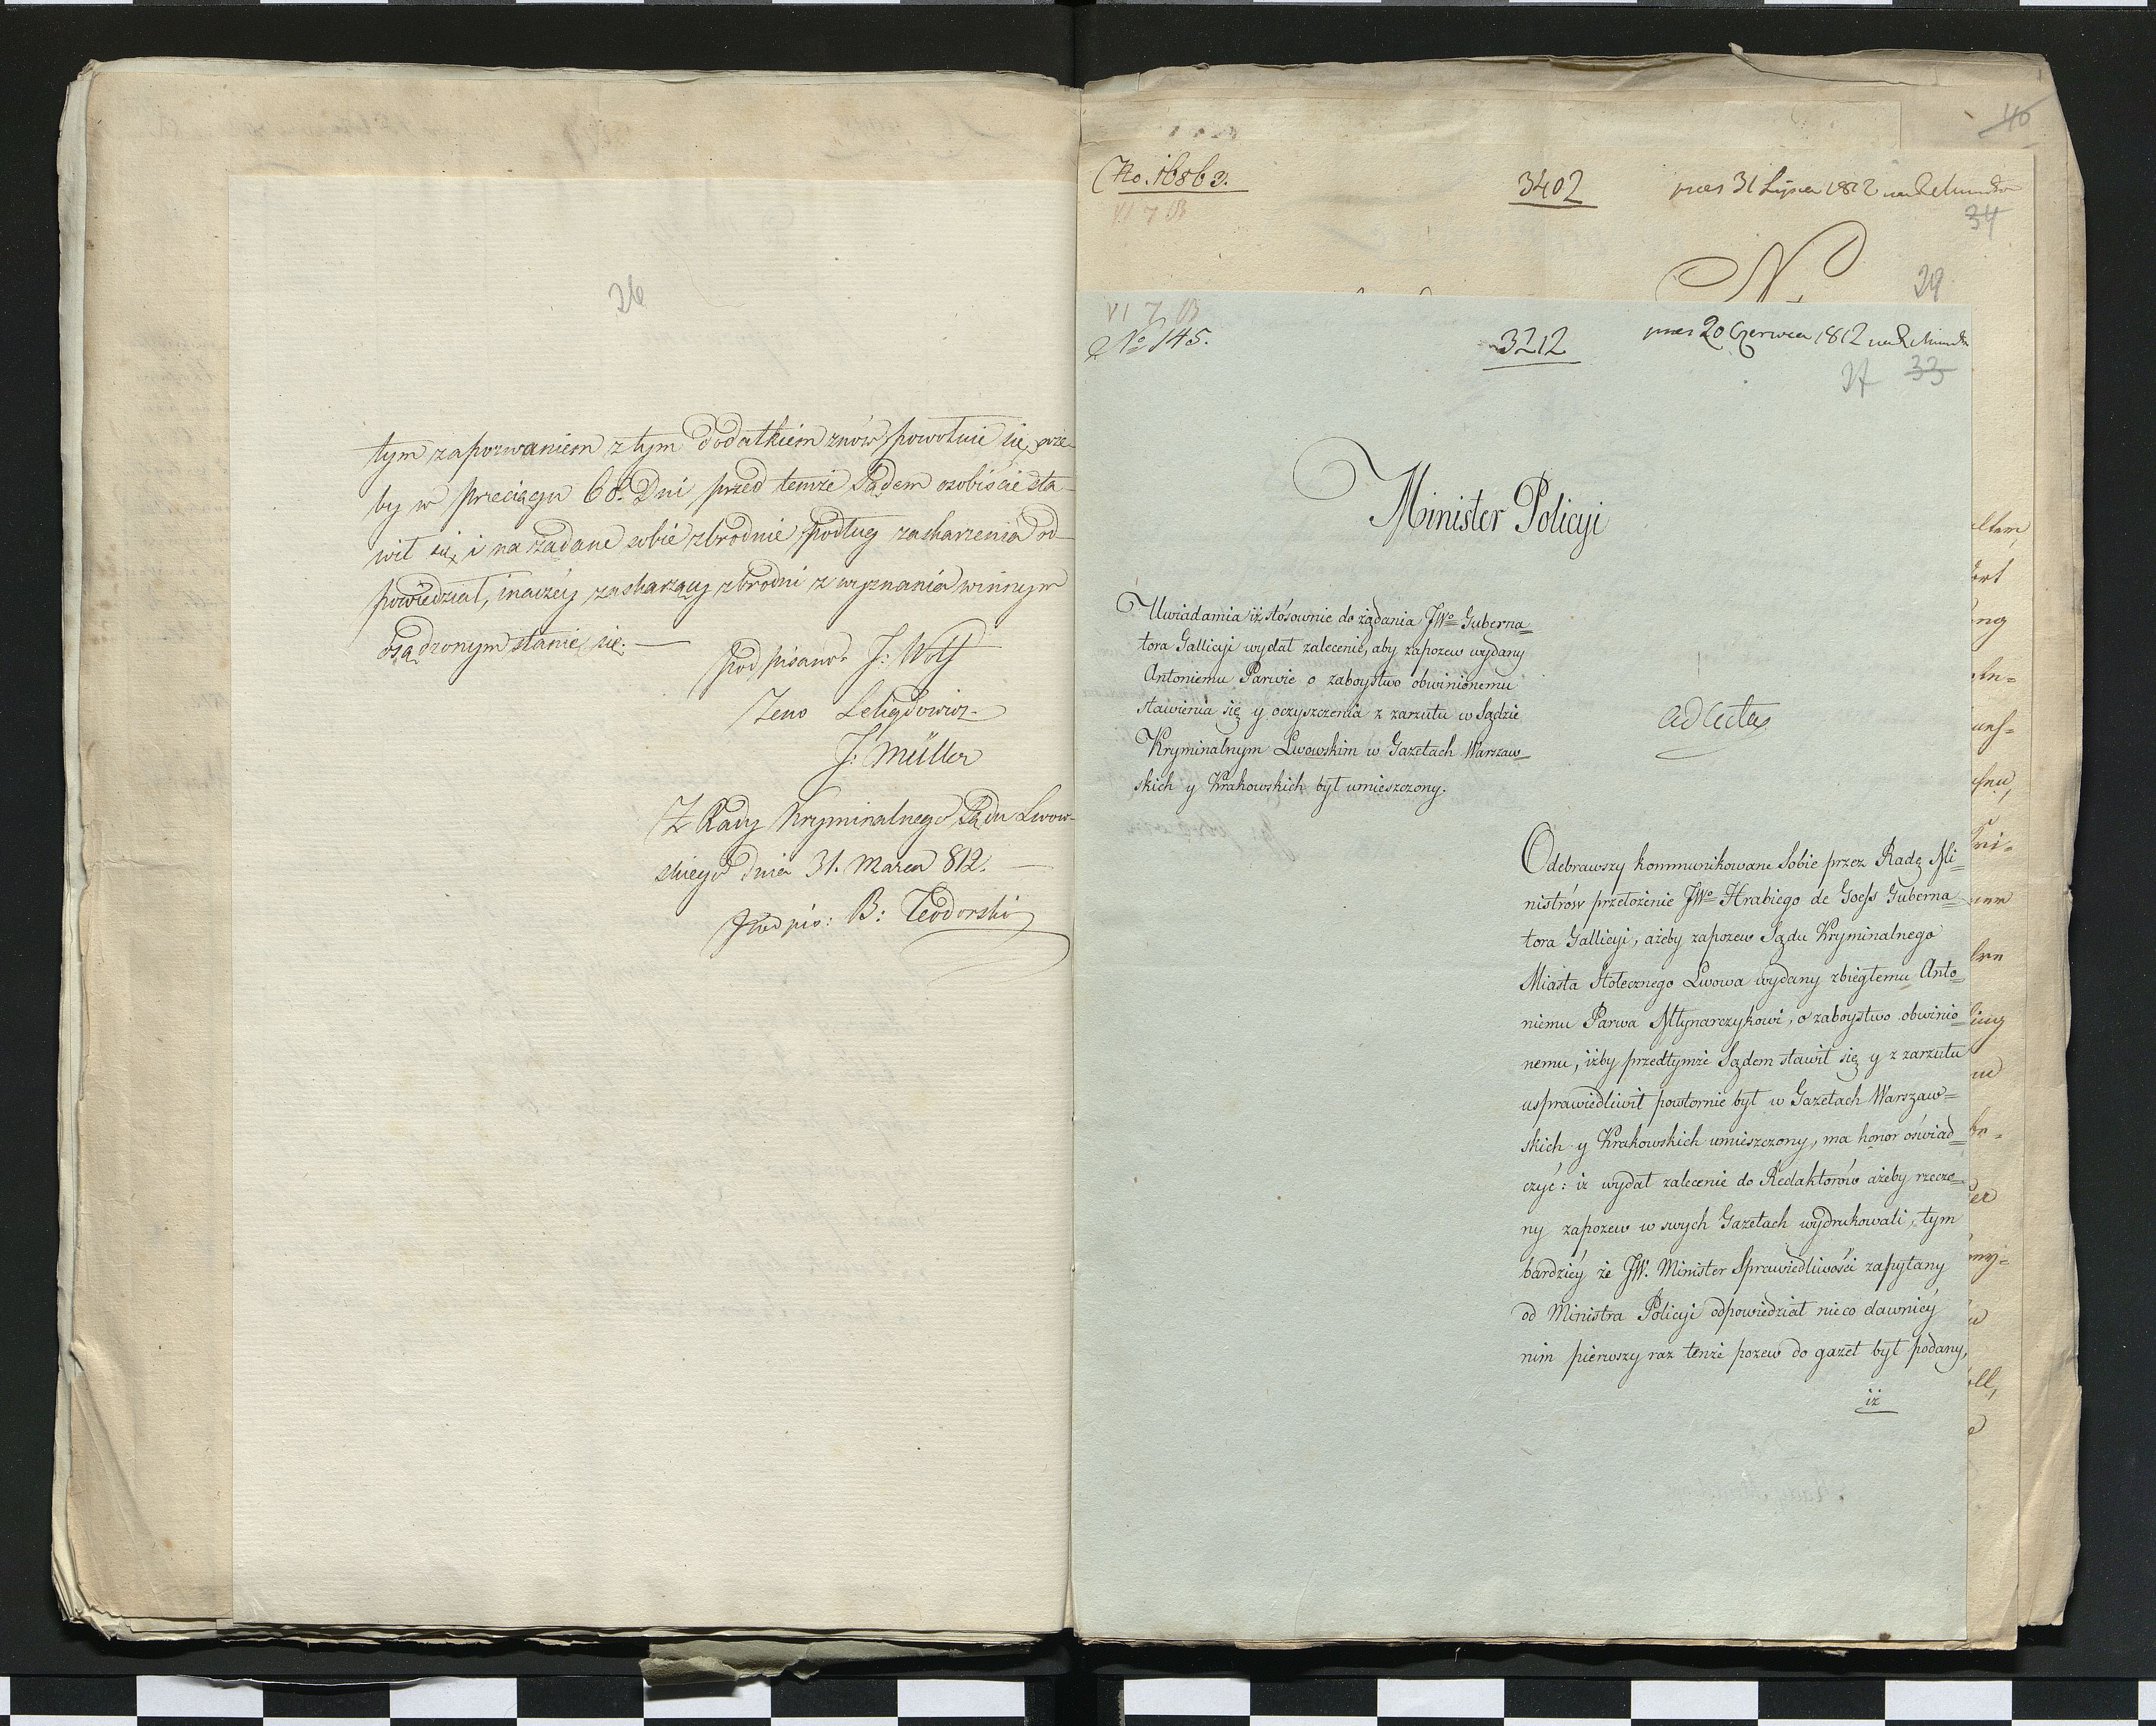 26
tym zapozwaniem z tym dodatkiem znów powołuie się, aże-
by w przeciągu 60. Dni przed temże Sądem osobiście sta-
wił się, i na zadane sobie zbrodnie podług zaskarżenia od-
powiedział, inaczéy zaskarżąny zbrodni z wyznania winnym
osądzonym stanie się. —
podpisano. J: Wolf
Zeno Leligdowicz
J: Müller
Z Rady Kryminalnego Sądu Lwow-
skiego dnia 31. Marca 812. —
Podpis: B: Teodorski
40
No. 16863.
3402
praes 31 Lipca 1812
VI 7 B
34
29
VI 7 B
No 145.
3212
praes 20 Czerwca 1812
27 33
Minister Policyi
Uwiadamia iż stósownie do żądania JWo Guberna=
tora Gallicyi wydał zalecenie, aby zapozew wydany
Antoniemu Parwie o zaboystwo obwinionemu
stawienia się y oczyszczenia z zarzutu w Sądzie
Kryminalnym Lwowskim w Gazetach Warszaw=
skich y Krakowskich był umieszczony.
ad acta
Odebrawszy kommunikowane Sobie przez Radę Mi=
nistrów przełożenie JWo Hrabiego de Goess Guberna=
tora Gallicyi, ażeby zapozew Sądu Kryminalnego
Miasta Stołecznego Lwowa wydany zbiegłemu Anto=
niemu Parwa Młynarczykowi, o zaboystwo obwinio=
nemu, iżby przedtymże Sądem stawił się y z zarzutu
usprawiedliwił powtornie był w Gazetach Warszaw=
skich y Krakowskich umieszczony, ma honor oświad=
czyć: iż wydał zalecenie do Redaktorów ażeby rzeczo=
ny zapozew w swych Gazetach wydrukowali, tym
bardziéy że JW. Minister Sprawiedliwości zapytany
od Ministra Policyi odpowiedział nieco dawniéy
nim pierwszy raz tenże pozew do gazet był podany,
iż